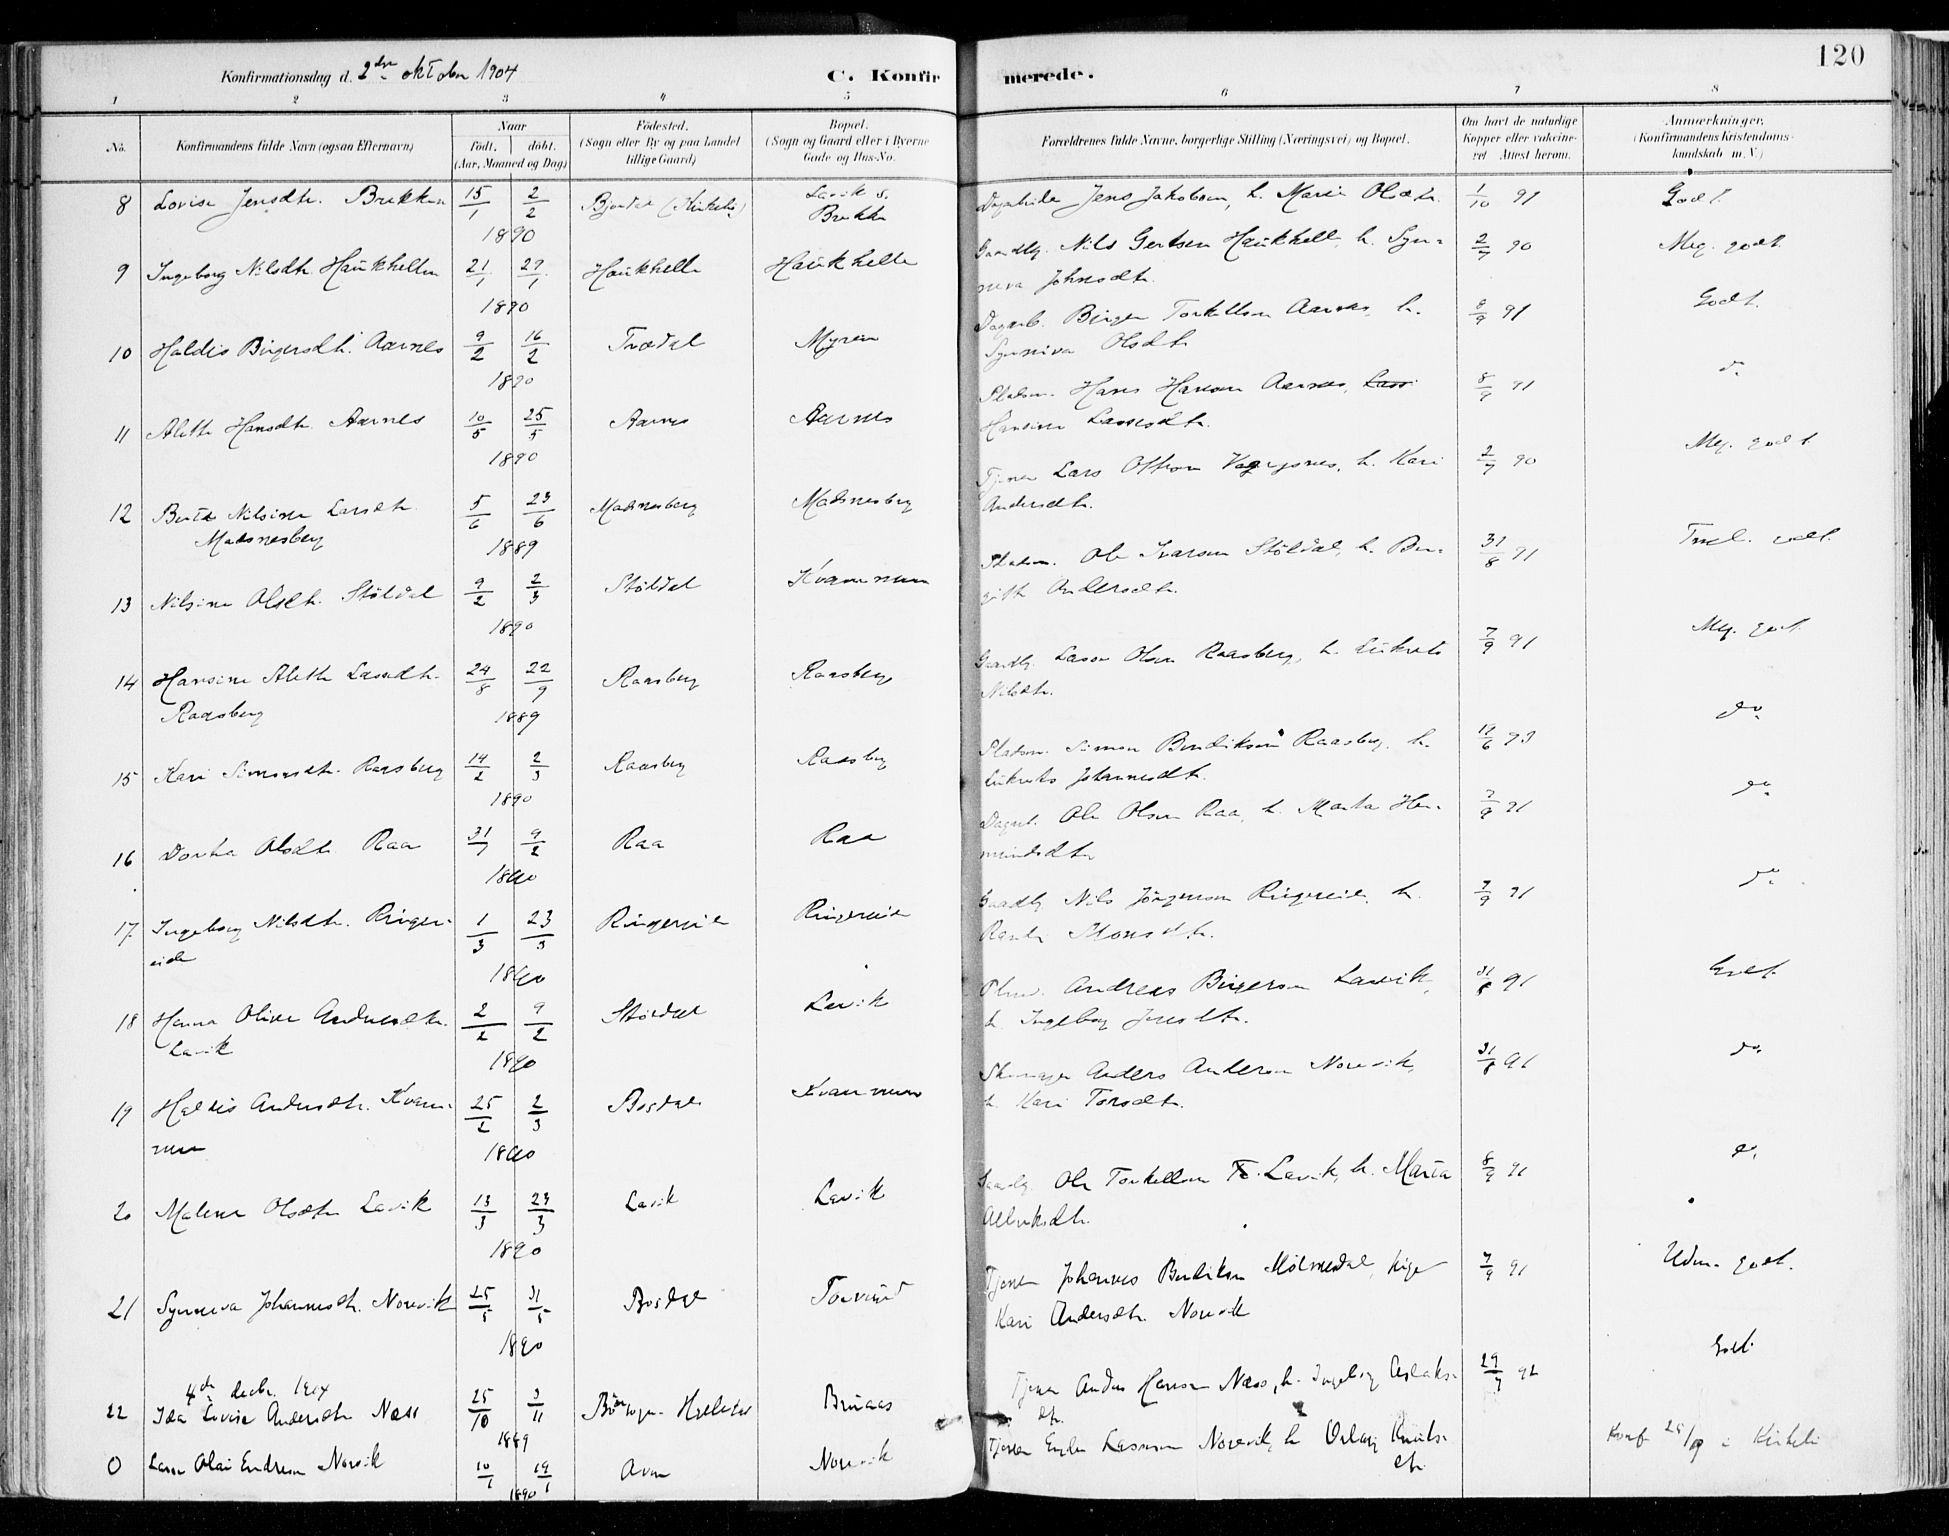 Konfirmationsdag d. 2den oktober 1904
C. Konfirmerede.
120
1 2 3 4 5 6 7 8
No.
Konfirmandens fulde Navn (ogsaa Efternavn)
Naar
født. døbt.
(Aar, Maaned og Dag)
Fødested.
(Sogn eller By og paa Landet
tillige Gaard)
Bopæl.
(Sogn og Gaard eller i Byerne
Gade og Hus-No.
Forældrenes fulde Navne, borgerlige Stilling (Næringsvei) og Bopæl.
Om havt de naturlige
Kopper eller vaccine-
ret Attest herom.
Anmærkninger.
(Konfirmandens Kristendoms-
kundskab m. V.)
8 Lovise Jensdtr. Brekken 15/1 2/2 Lavik s.
Brekke Jens Jakobsen, h. Marie Olsdtr. 1/10 91 Godt.
1890
9 Ingeborg Nilsdtr. Haukhellen 21/1 27/1 Haukhelle Haukhelle Gaardbr. Nils Gertsen Haukhelle, h. Syn-
neva Johnsdtr. 2/7 90 Meg. godt.
1890
10 Haldis Birgersdtr. Aarnes 9/2 16/2 Trædal Myren Dagarb. Birger Torkellsen Aarnes, h.
Synneva Olsdtr. 8/9 91 Godt.
1890
11 Aleth Hansdtr. Aarnes 10/5 25/5 Aarnes Aarnes Pladsm. Hans Hansen Aarnes, Lass
Hansine Lassesdtr. 8/9 91 do
1890
12 Berthe Nilsine Larsdtr.
Madsnesberg 5/6 23/6 Madsnesberg Madsnesberg Tjener Lars Ottesen h. Kari
Andersdtr. 2/7 90 Meg. godt.
1889
13 Nilsine Olsdtr. Stöldal 9/2 2/3 Stöldal Kvammen Pladsm. Ole Ivarsen Stöldal, h. Ber-
gith Andersdtr. 31/8 91 godt.
1890
14 Hansine Aleth Lassedtr.
Raasberg 24/8 22/9 Raasberg Raasberg Gaardbr. Lasse Olsen Raasberg, h. Lukrets
Nilsdtr. 7/9 91 Meg. godt.
1889
15 Kari Simonsdtr. Raasberg 14/2 2/3 Raasberg Raasberg Pladsm. Simon Bendiksen Raasberg, h.
Lukrets Johannesdtr. do.
1890
16 Dortea Olsdtr. Raa 31/1 9/2 Raa Raa Dagarb. Ole Olsen Raa, h. Marta Her-
mundsdtr. 7/9 91 do.
1890
17 Ingeborg Nilsdtr. Ringer-
eide 1/3 23/3 Ringereide Ringereide Gaardbr. Nils Jörgensen Ringereide, h.
Monsdtr. 7/9 91 do.
1890
18 Hanna Oline Andreasdtr.
Lavik 2/2 9/2 Stöldal Lavik Andreas Birgersen Lavik,
h. Ingeborg Jensdtr. 31/8 91 Godt.
1890
19 Haldis Andersdtr. Kvam-
men 25/2 2/3 Bosdal Kvammen Skomager Anders Andersen Norevik,
h. Kari Torsdtr. 31/8 91 do.
1890
20 Malene Olsdtr. Lavik 13/3 23/3 Lavik Lavik Gaardbr. Ole Torkellsen To. Lavik, h. Marta
8/9 91 do.
1890
21 Synneva Johannesdtr. Norevik 25/5 31/5 Bosdal Torvund Tjener Johannes Bendiksen Mölmesdal, pige
Kari Andersdtr. Norevik 7/9 91 Uden. godt.
1890
4de decbr. 1904
22 Ida Lovise Andersdtr. Næss 25/10 3/11 Bruaas Tjener Anders Hansen Næss, h. Ingeborg Aslaks-
dtr. 29/7 92 Godt.
1889
0 Lasse Olai Endresen Norevik 10/1 19/1 Norevik Tjener Endre Lassesen Norevik, h. Knuts-
dtr. Konf 25/9 i Kirkebö
1890